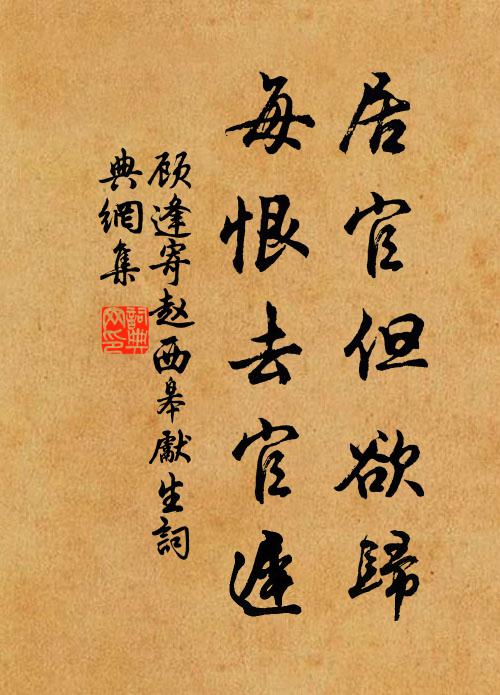 居官但欲歸
每恨去官遲
顾逢寄赵西皋獻生詞
典網集
詞典網印